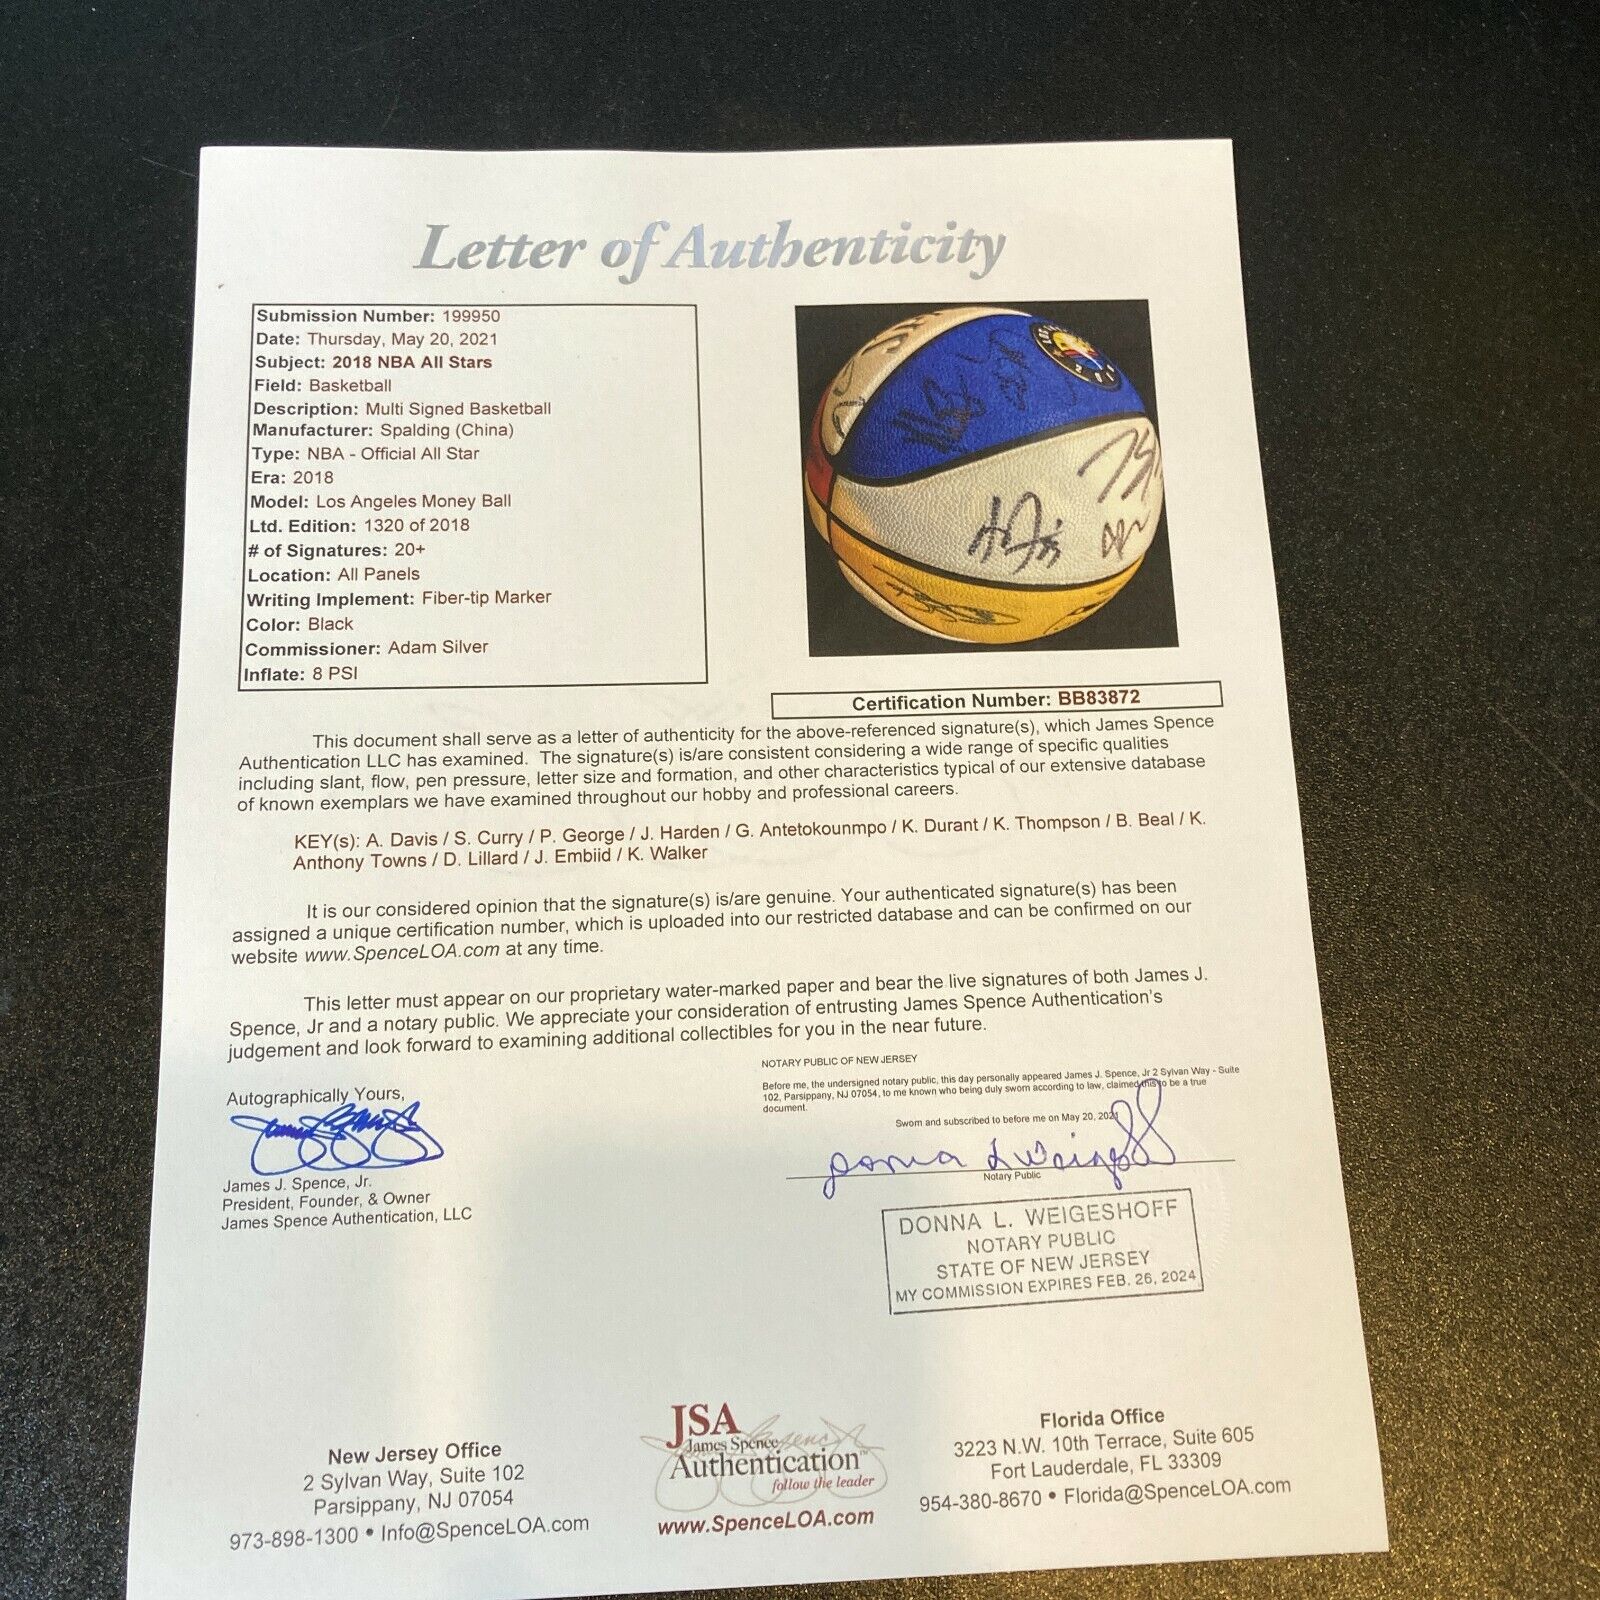 Letter of Authenticity
Submission Number: 199950
Date: Thursday, May 20, 2021
Subject: 2018 NBA All Stars
Field: Basketball
Description: Multi Signed Basketball
Manufacturer: Spalding (China)
Type: NBA - Official All Star
Era: 2018
Model: Los Angeles Money Ball
Ltd. Edition: 1320 of 2018
# of Signatures: 20+
Location: All Panels
Writing Implement: Fiber-tip Marker
Color: Black
Commissioner: Adam Silver
Inflate: 8 PSI
Certification Number: BB83872
This document shall serve as a letter of authenticity for the above-referenced signature(s), which James Spence
Authentication LLC has examined. The signature(s) is/are consistent considering a wide range of specific qualities
including slant, flow, pen pressure, letter size and formation, and other characteristics typical of our extensive database
of known exemplars we have examined throughout our hobby and professional careers.
KEY(s): A. Davis / S. Curry / P. George / J. Harden / G. Antetokounmpo / K. Durant / K. Thompson / B. Beal / K.
Anthony Towns / D. Lillard / J. Embiid / K. Walker
It is our considered opinion that the signature(s) is/are genuine. Your authenticated signature(s) has been
assigned a unique certification number, which is uploaded into our restricted database and can be confirmed on our
website www.SpenceLOA.com at any time.
This letter must appear on our proprietary water-marked paper and bear the live signatures of both James J.
Spence, Jr and a notary public. We appreciate your consideration of entrusting James Spence Authentication's
judgement and look forward to examining additional collectibles for you in the near future.
NOTARY PUBLIC OF NEW JERSEY
Before me, the undersigned notary public, this day personally appeared James J. Spence, Jr 2 Sylvan Way - Suite
102, Parsippany, NJ 07054, to me known who being duly sworn according to law, claimed this to be a true
document.
Sworn and subscribed to before me on May 20, 2021
Autographically Yours,
James J. Spence, Jr.
President, Founder, & Owner
James Spence Authentication, LLC
Donna L Weigeshoff
Notary Public
DONNA L. WEIGESHOFF
NOTARY PUBLIC
STATE OF NEW JERSEY
MY COMMISSION EXPIRES FEB. 26, 2024
New Jersey Office
2 Sylvan Way, Suite 102
Parsippany, NJ 07054
973-898-1300 • Info@SpenceLOA.com
JSA
James Spence
Authentication™
follow the leader
www.SpenceLOA.com
Florida Office
3223 N.W. 10th Terrace, Suite 605
Fort Lauderdale, FL 33309
954-380-8670 • Florida@SpenceLOA.com